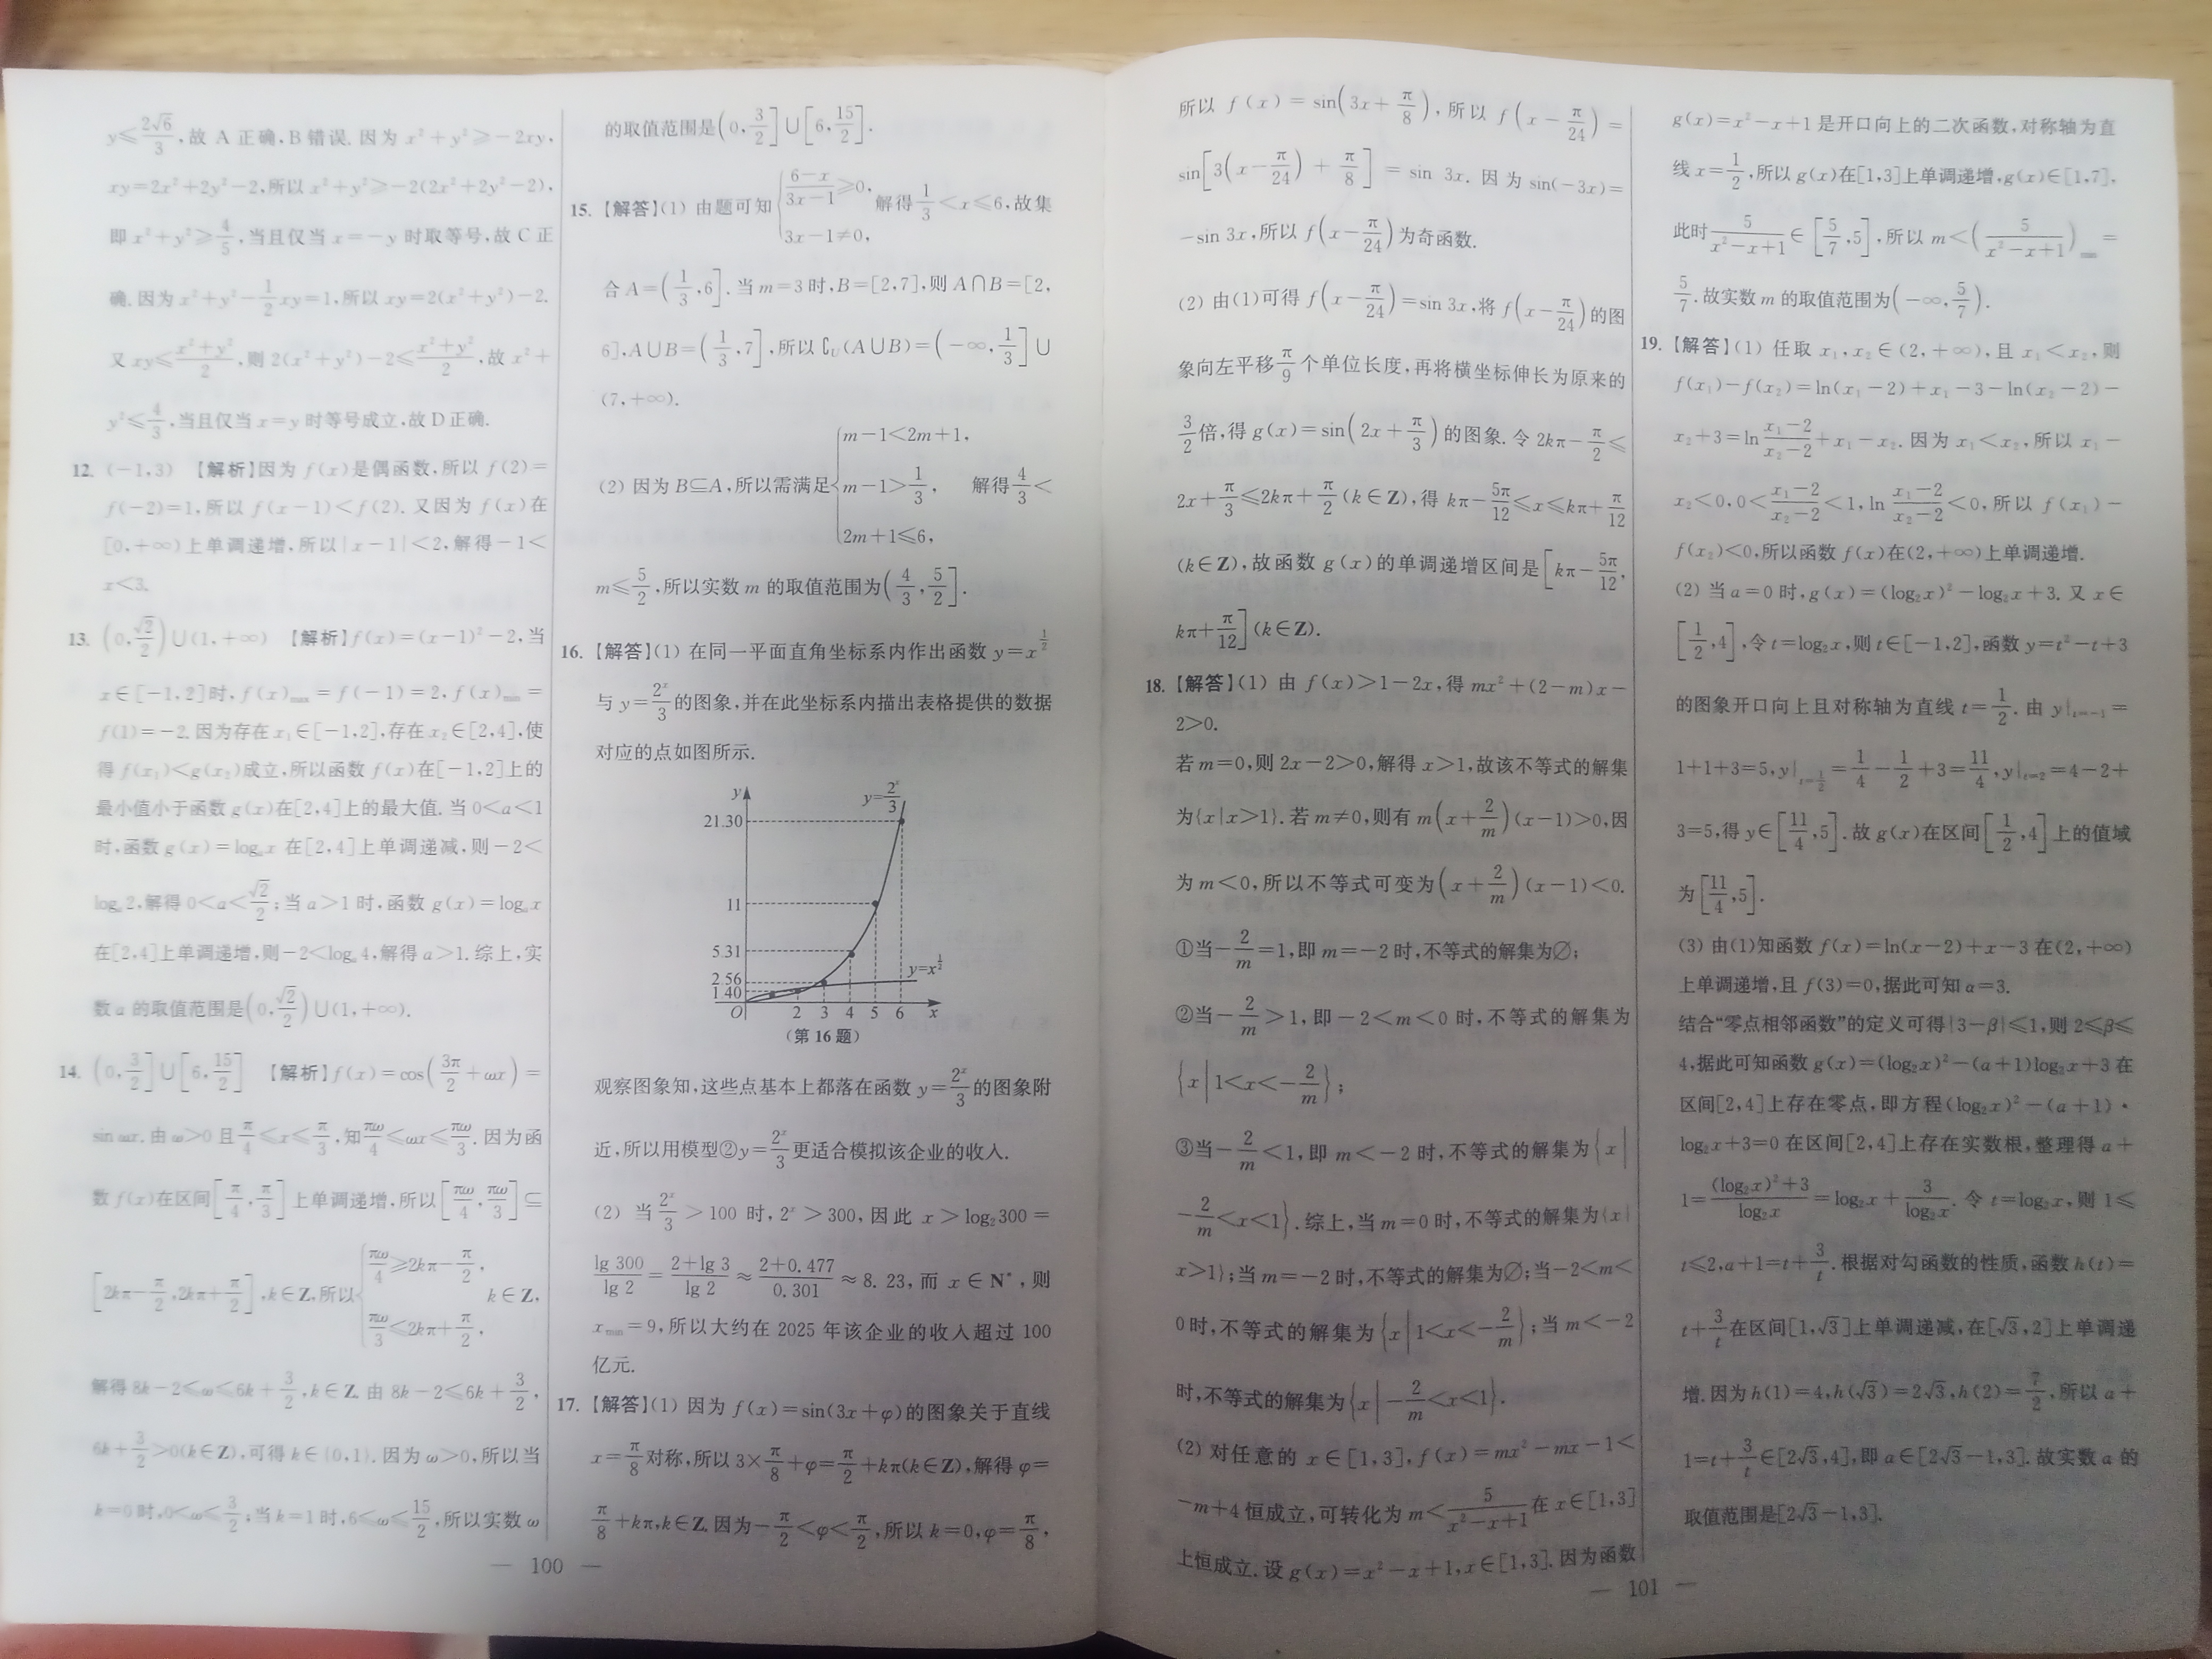 y≤2√6/3,故 A 正确,B 错误. 因为 x²+y²≥-2xy,
xy=2x²+2y²-2,所以 x²+y²≥-2(2x²+2y²-2),
即 x²+y²≥4/5,当且仅当 x=-y 时取等号,故 C 正
确. 因为 x²+y²-1/2xy=1,所以 xy=2(x²+y²)-2.
又 xy≤(x²+y²)/2,则 2(x²+y²)-2≤(x²+y²)/2,故 x²+
y²≤4/3,当且仅当 x=y 时等号成立,故 D 正确.
12. (-1,3) 【解析】因为 f(x)是偶函数,所以 f(2)=
f(-2)=1,所以 f(x-1)<f(2). 又因为 f(x)在
[0,+∞)上单调递增,所以|x-1|<2,解得-1<
x<3.
13. (0,√2/2)∪(1,+∞) 【解析】f(x)=(x-1)²-2,当
x∈[-1,2]时,f(x)max=f(-1)=2,f(x)min=
f(1)=-2. 因为存在 x₁∈[-1,2],存在 x₂∈[2,4],使
得 f(x₁)<g(x₂)成立,所以函数 f(x)在[-1,2]上的
最小值小于函数 g(x)在[2,4]上的最大值. 当 0<a<1
时,函数 g(x)=logₐx 在[2,4]上单调递减,则-2<
logₐ2,解得 0<a<√2/2;当 a>1 时,函数 g(x)=logₐx
在[2,4]上单调递增,则-2<logₐ4,解得 a>1. 综上,实
数 a 的取值范围是(0,√2/2)∪(1,+∞).
14. (0,3/2]∪[6,15/2] 【解析】f(x)=cos(3π/2+ωx)=
sin ωx. 由 ω>0 且 π/4≤x≤π/3,知πω/4≤ωx≤πω/3. 因为函
数 f(x)在区间[π/4,π/3]上单调递增,所以[πω/4,πω/3]⊆
[2kπ-π/2,2kπ+π/2],k∈Z,所以{πω/4≥2kπ-π/2, πω/3≤2kπ+π/2, k∈Z,
解得 8k-2≤ω≤6k+3/2,k∈Z. 由 8k-2≤6k+3/2,
6k+3/2>0(k∈Z),可得 k∈{0,1}. 因为 ω>0,所以当
k=0 时,0<ω≤3/2;当 k=1 时,6≤ω≤15/2,所以实数 ω
— 100 —
的取值范围是(0,3/2]∪[6,15/2].
15. 【解答】(1) 由题可知{(6-x)/(3x-1)≥0, 3x-1≠0, 解得1/3<x≤6,故集
合 A=(1/3,6]. 当 m=3 时,B=[2,7],则 A∩B=[2,
6],A∪B=(1/3,7],所以∁U(A∪B)=(-∞,1/3]∪
(7,+∞).
(2) 因为 B⊆A,所以需满足{m-1<2m+1, m-1>1/3, 2m+1≤6, 解得4/3<
m≤5/2,所以实数 m 的取值范围为(4/3,5/2].
16. 【解答】(1) 在同一平面直角坐标系内作出函数 y=x^(1/2)
与 y=2ˣ/3的图象,并在此坐标系内描出表格提供的数据
对应的点如图所示.
y
y=2ˣ/3
21.30
11
5.31
y=x^(1/2)
2.56
1.40
O 2 3 4 5 6 x
(第16题)
观察图象知,这些点基本上都落在函数 y=2ˣ/3的图象附
近,所以用模型②y=2ˣ/3更适合模拟该企业的收入.
(2) 当2ˣ/3>100 时,2ˣ>300,因此 x>log₂300=
lg 300/lg 2=(2+lg 3)/lg 2≈(2+0.477)/0.301≈8.23,而 x∈N*,则
xmin=9,所以大约在 2025 年该企业的收入超过 100
亿元.
17. 【解答】(1) 因为 f(x)=sin(3x+φ)的图象关于直线
x=π/8对称,所以 3×π/8+φ=π/2+kπ(k∈Z),解得 φ=
π/8+kπ,k∈Z. 因为-π/2<φ<π/2,所以 k=0,φ=π/8,
所以 f(x)=sin(3x+π/8),所以 f(x-π/24)=
sin[3(x-π/24)+π/8]=sin 3x. 因为 sin(-3x)=
-sin 3x,所以 f(x-π/24)为奇函数.
(2) 由(1)可得 f(x-π/24)=sin 3x,将 f(x-π/24)的图
象向左平移π/9个单位长度,再将横坐标伸长为原来的
3/2倍,得 g(x)=sin(2x+π/3)的图象. 令 2kπ-π/2≤
2x+π/3≤2kπ+π/2(k∈Z),得 kπ-5π/12≤x≤kπ+π/12
(k∈Z),故函数 g(x)的单调递增区间是[kπ-5π/12,
kπ+π/12](k∈Z).
18. 【解答】(1) 由 f(x)>1-2x,得 mx²+(2-m)x-
2>0.
若 m=0,则 2x-2>0,解得 x>1,故该不等式的解集
为{x|x>1}. 若 m≠0,则有 m(x+2/m)(x-1)>0,因
为 m<0,所以不等式可变为(x+2/m)(x-1)<0.
①当-2/m=1,即 m=-2 时,不等式的解集为∅;
②当-2/m>1,即-2<m<0 时,不等式的解集为
{x|1<x<-2/m};
③当-2/m<1,即 m<-2 时,不等式的解集为{x|
-2/m<x<1}. 综上,当 m=0 时,不等式的解集为{x|
x>1};当 m=-2 时,不等式的解集为∅;当-2<m<
0 时,不等式的解集为{x|1<x<-2/m};当 m<-2
时,不等式的解集为{x|-2/m<x<1}.
(2) 对任意的 x∈[1,3],f(x)=mx²-mx-1<
-m+4 恒成立,可转化为 m<5/(x²-x+1)在 x∈[1,3]
上恒成立. 设 g(x)=x²-x+1,x∈[1,3]. 因为函数
— 101 —
g(x)=x²-x+1 是开口向上的二次函数,对称轴为直
线 x=1/2,所以 g(x)在[1,3]上单调递增,g(x)∈[1,7],
此时5/(x²-x+1)∈[5/7,5],所以 m<(5/(x²-x+1))min=
5/7. 故实数 m 的取值范围为(-∞,5/7).
19. 【解答】(1) 任取 x₁,x₂∈(2,+∞),且 x₁<x₂,则
f(x₁)-f(x₂)=ln(x₁-2)+x₁-3-ln(x₂-2)-
x₂+3=ln(x₁-2)/(x₂-2)+x₁-x₂. 因为 x₁<x₂,所以 x₁-
x₂<0,0<(x₁-2)/(x₂-2)<1,ln(x₁-2)/(x₂-2)<0,所以 f(x₁)-
f(x₂)<0,所以函数 f(x)在(2,+∞)上单调递增.
(2) 当 a=0 时,g(x)=(log₂x)²-log₂x+3. 又 x∈
[1/2,4],令 t=log₂x,则 t∈[-1,2],函数 y=t²-t+3
的图象开口向上且对称轴为直线 t=1/2. 由 y|t=-1=
1+1+3=5,y|t=1/2=1/4-1/2+3=11/4,y|t=2=4-2+
3=5,得 y∈[11/4,5]. 故 g(x)在区间[1/2,4]上的值域
为[11/4,5].
(3) 由(1)知函数 f(x)=ln(x-2)+x-3 在(2,+∞)
上单调递增,且 f(3)=0,据此可知 α=3.
结合“零点相邻函数”的定义可得|3-β|≤1,则 2≤β≤
4,据此可知函数 g(x)=(log₂x)²-(a+1)log₂x+3 在
区间[2,4]上存在零点,即方程(log₂x)²-(a+1)·
log₂x+3=0 在区间[2,4]上存在实数根,整理得 a+
1=((log₂x)²+3)/log₂x=log₂x+3/log₂x. 令 t=log₂x,则 1≤
t≤2,a+1=t+3/t. 根据对勾函数的性质,函数 h(t)=
t+3/t在区间[1,√3]上单调递减,在[√3,2]上单调递
增. 因为 h(1)=4,h(√3)=2√3,h(2)=7/2,所以 a+
1=t+3/t∈[2√3,4],即 a∈[2√3-1,3]. 故实数 a 的
取值范围是[2√3-1,3].